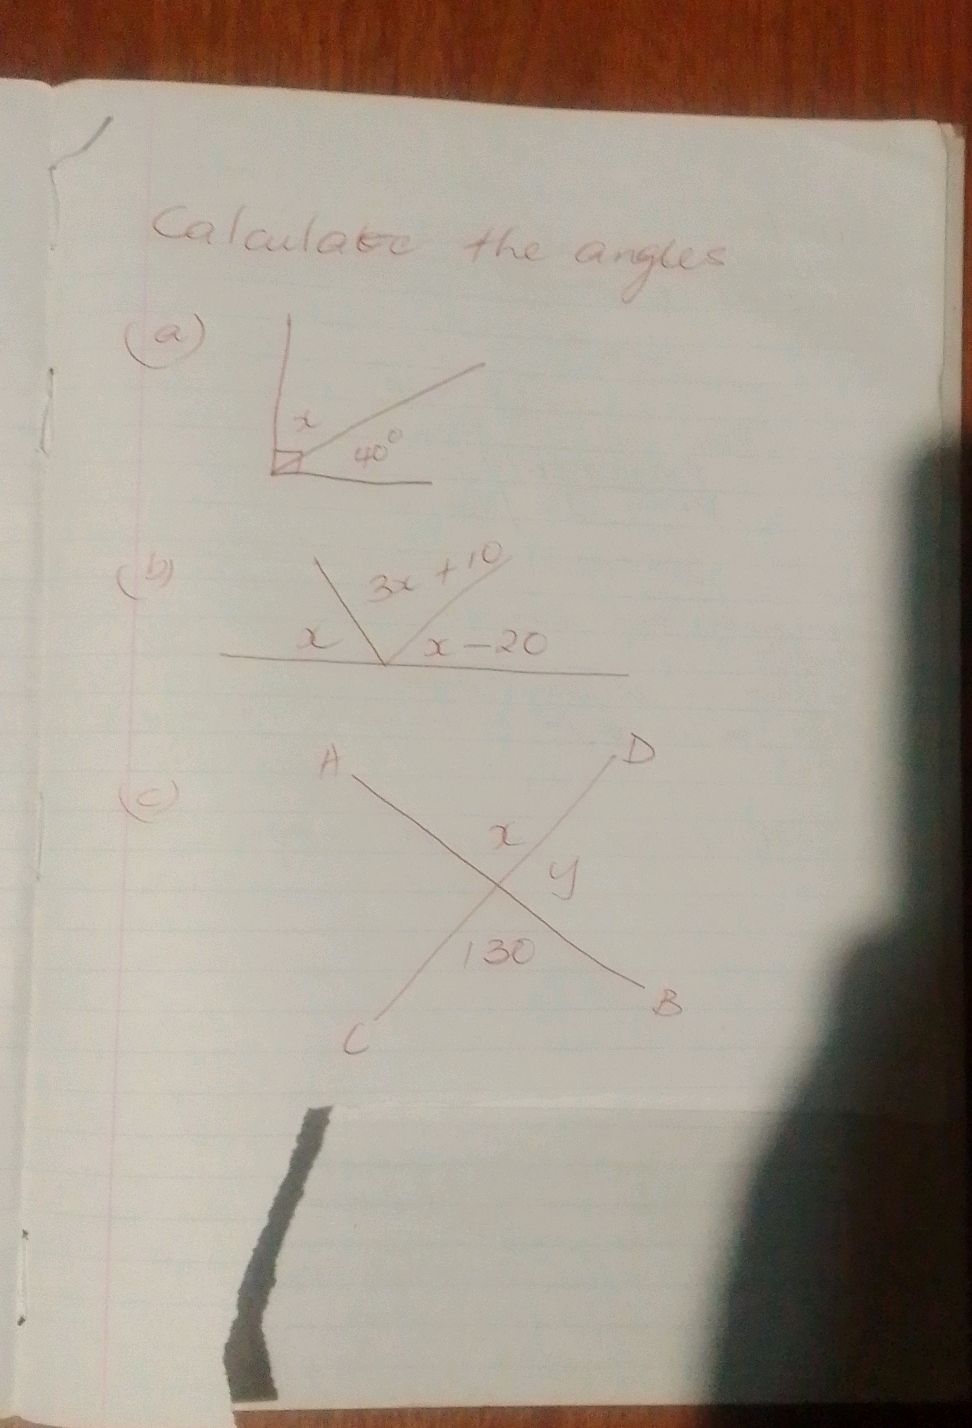 Calculate the angles
(a)
x
40°
(b)
3x + 10
x
x - 20
A
D
(c)
x
y
130
B
C